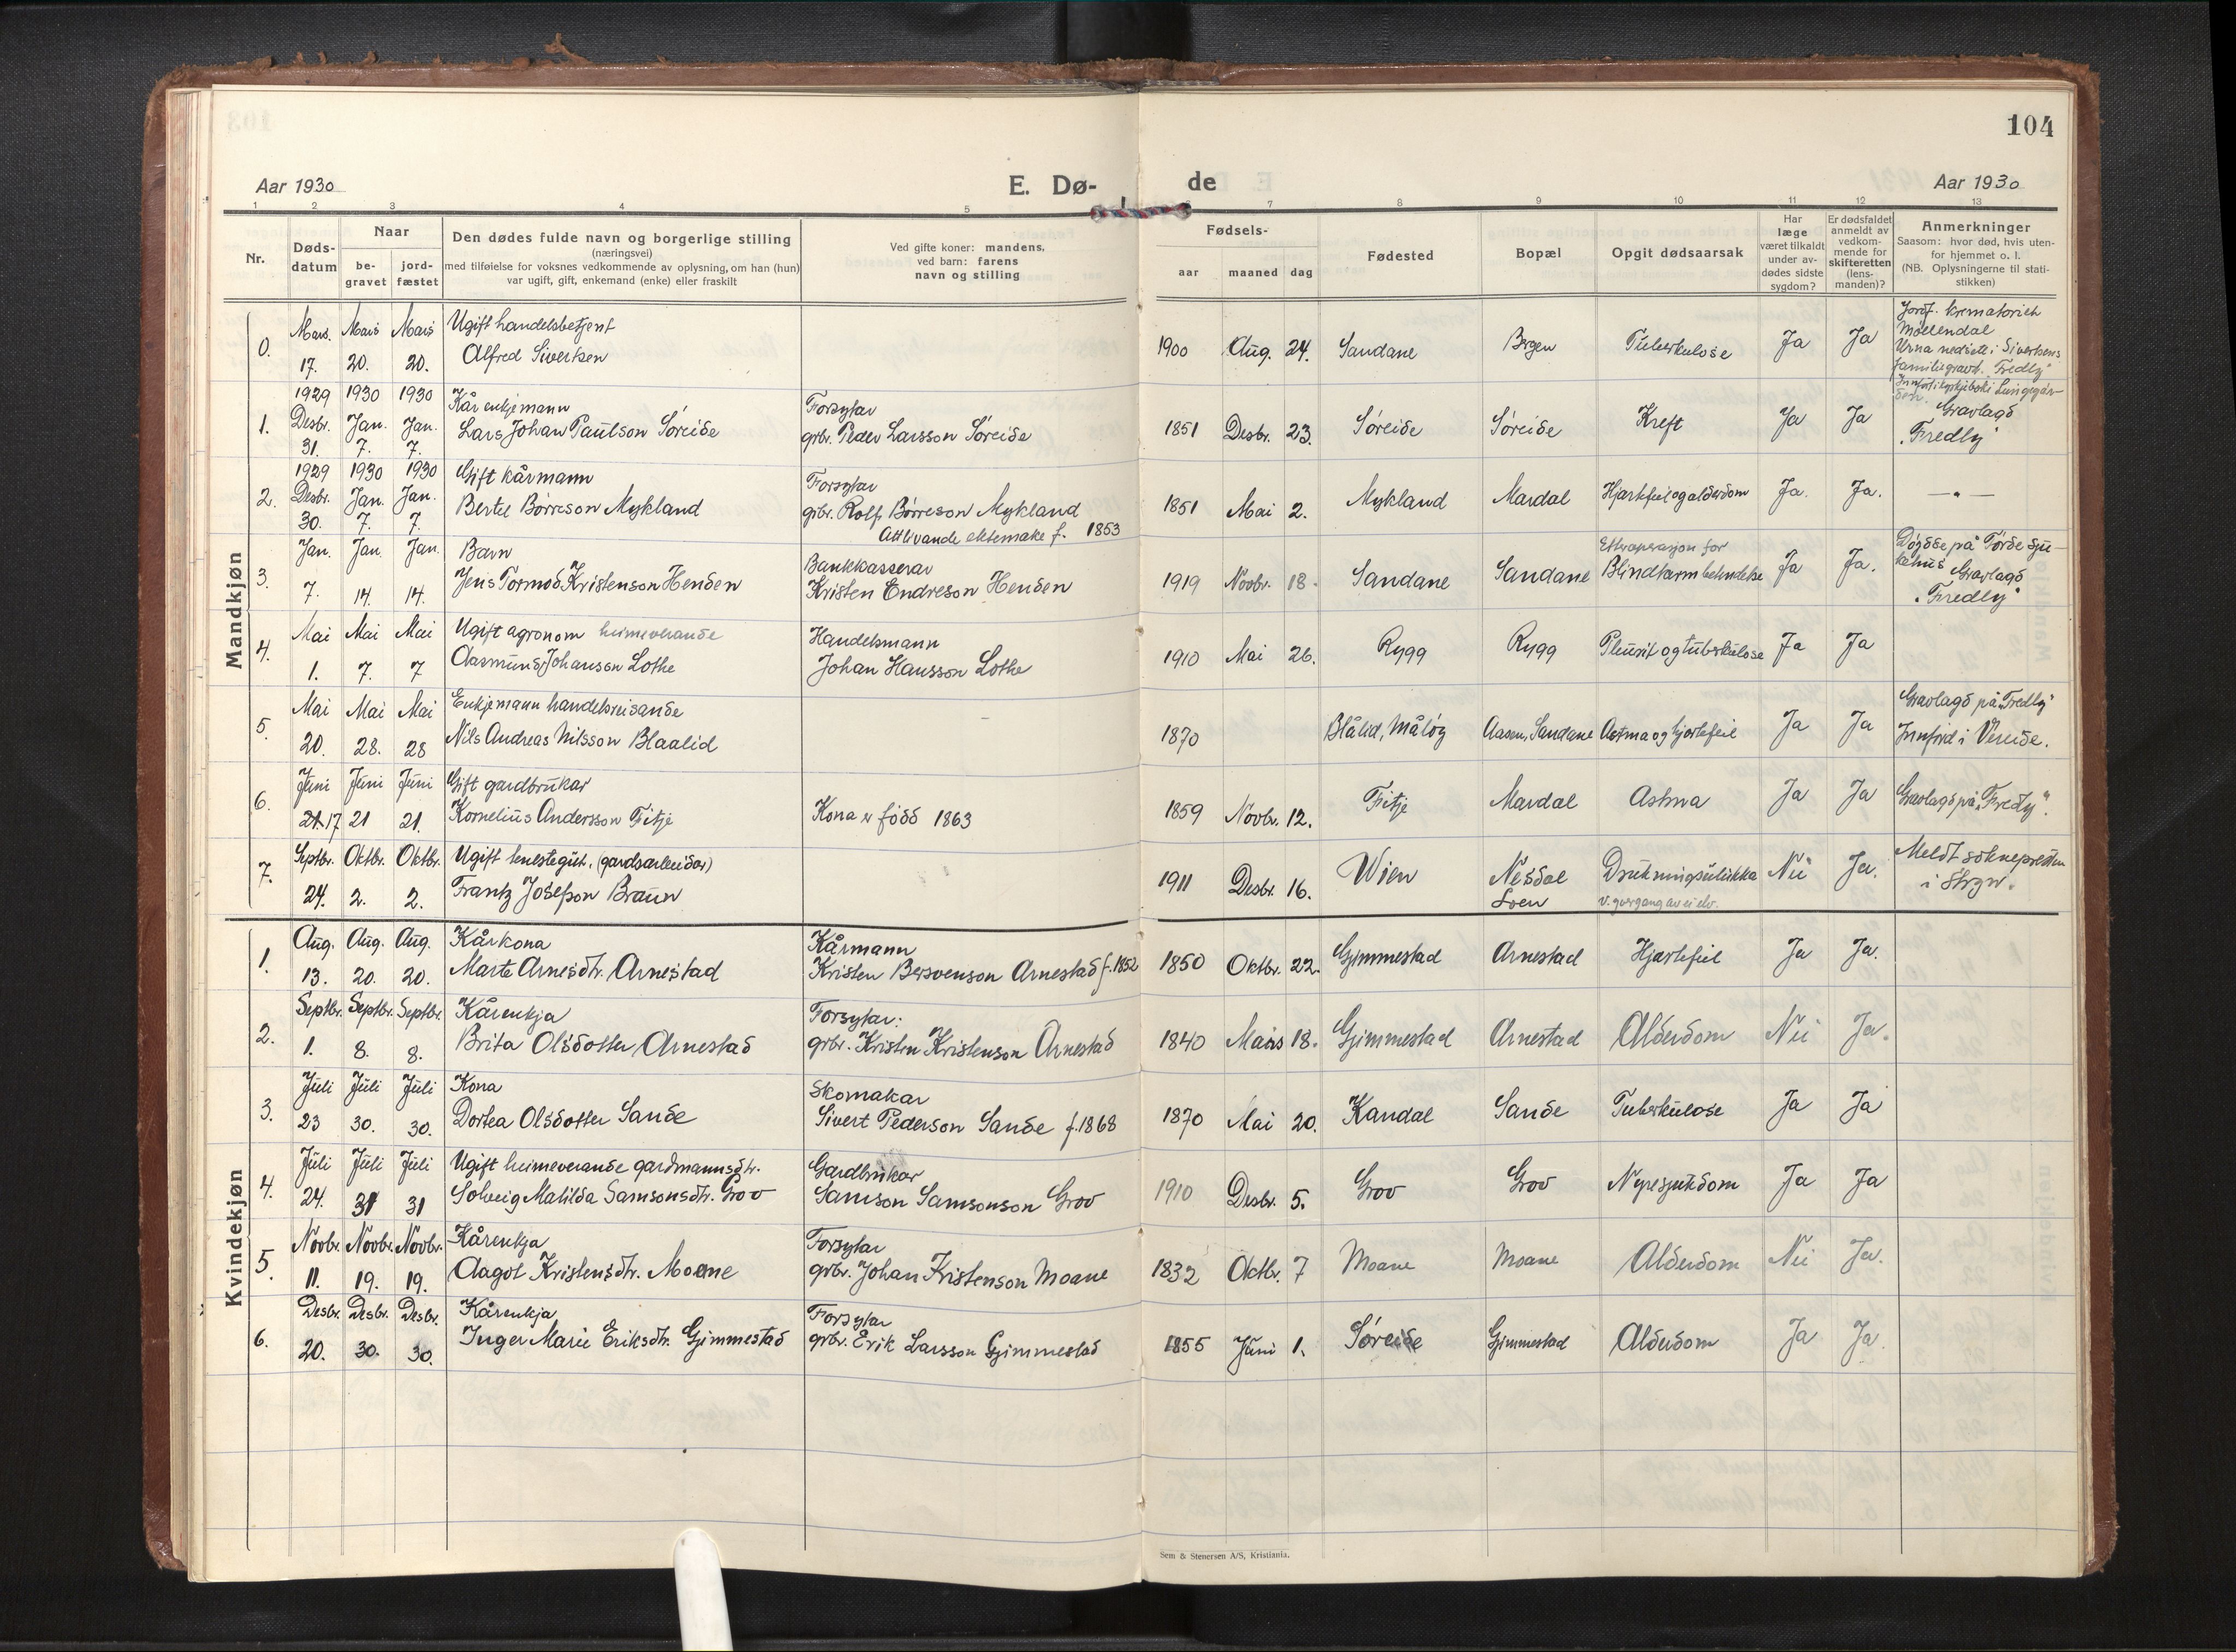 104
Aar 1930
E. Dø-
de
Aar 1930
1 2 3 4 5 7 8 9 10 11 12 13
Nr.
Døds-
datum
Naar
be-
gravet
jord-
fæstet
Den dødes fulde navn og borgerlige stilling
(næringsvei)
med tilføielse for voksnes vedkommende av oplysning, om han (hun)
var ugift, gift, enkemand (enke) eller fraskilt
Ved gifte koner: mandens,
ved barn: farens
navn og stilling
Fødsels-
aar maaned dag
Fødested
Bopæl
Opgit dødsaarsak
Har
læge
været tilkaldt
under av-
dødes sidste
sygdom?
Er dødsfaldet
anmeldt av
vedkom-
mende for
skifteretten
(lens-
manden)?
Anmerkninger
Saasom: hvor død, hvis uten-
for hjemmet o. l.
(NB. Oplysningerne til stati-
stikken)
Mandkjøn
0.
Mars. 17.
Mars 20.
Mars 20.
Ugift handelsbetjent
Alfred Sivertsen
1900 Aug. 24. Sandane Bergen Tuberkulose Ja Ja
Jordf. krematoriet
Møllendal
Urna nedsett i Sivertsens
familiegravst. "Fredly"
1.
1929 Desbr. 31.
1930 Jan. 7.
1930 Jan. 7.
Kårenkjemann
Lars Johan Paulson Søreide
Forsytar
grbr. Peder Larsson Søreide
1851 Desbr. 23. Søreide Søreide Kreft Ja Ja
Gravlagd
"Fredly"
2.
1929 Desbr. 30.
1930 Jan. 7.
1930 Jan. 7.
Gift kårmann
Bertel Børreson Mykland
Forsytar
grbr. Rolf Børreson Mykland
Attlivande ektemake f. 1853
1851 Mai 2. Mykland Mardal Hjartefeil og alderdom Ja. Ja. — " —
3.
Jan. 7.
Jan. 14.
Jan. 14.
Barn
Jens Tormod Kristenson Henden
Bankkasserar
Kristen Endreson Henden
1919 Novbr. 18. Sandane Sandane
Etteroperasjon for
Blindtarmbetendelse Ja Ja.
Døydde på Førde sju-
kehus Gravlagd
"Fredly"
4.
Mai 1.
Mai 7.
Mai 7
Ugift agronom heimeverande
Aasmund Johanson Lothe
Handelsmann
Johan Hansson Lothe
1910 Mai 26. Rygg Rygg Pleurit og tuberkulose Ja Ja
5.
Mai 20.
Mai 28.
Mai 28
Enkjemann handelsreisande
Nils Andreas Nilsson Blaalid
1870 Blålid, Måløy Aasen, Sandane Astma og hjartefeil Ja Ja
Gravlagd på "Fredly"
Innførd i Vereide.
6.
Juni 21. 17
Juni 21
Juni 21.
Gift gardbrukar
Kornelius Andersson Fitje
Kona er fødd 1863
1859 Novbr. 12. Fitje Mardal Astma Ja Ja Gravlagd på "Fredly".
7.
Septbr. 24.
Oktbr. 2.
Oktbr. 2.
Ugift tenestegut. (gardsarbeidar)
Frantz Josefson Braun
1911 Desbr. 16. Wien Nesdal
Loen
Drukningsulukka
v. yvergang av ei elv.
Nei Ja.
Meldt soknepresten
i Stryn.
Kvindekjøn
1.
Aug. 13.
Aug. 20.
Aug. 20.
Kårkona
Marta Arnesdtr. Arnestad
Kårmann
Kristen Bersvenson Arnestad f. 1852
1850 Oktbr. 22. Gjimmestad Arnestad Hjartefeil Ja Ja.
2.
Septbr. 1.
Septbr. 8.
Septbr. 8.
Kårenkja
Brita Olsdotter Arnestad
Forsytar:
grbr. Kristen Kristenson Arnestad
1840 Mars 18. Gjimmestad Arnestad Alderdom Nei Ja.
3.
Juli 23
Juli 30.
Juli 30.
Kona
Dortea Olsdotter Sande
Skomakar
Sivert Pederson Sande f. 1868
1870 Mai 20. Kandal Sande Tuberkulose Ja Ja
4.
Juli 24.
Juli 31
Juli 31
Ugift heimeverande gardmannsdtr.
Solveig Matilda Samsonsdtr. Grov
Gardbrukar
Samson Samsonson Grov
1910 Desbr. 5. Grov Grov Nyresjukdom Ja Ja
5.
Novbr. 11.
Novbr. 19.
Novbr. 19.
Kårenkja
Aagot Kristensdtr. Moane
Forsytar
grbr. Johan Kristenson Moane
1832 Oktbr. 7 Moane Moane Alderdom Nei Ja.
6.
Desbr. 20.
Desbr. 30.
Desbr. 30.
Kårenkja
Inger Marie Eriksdtr. Gjimmestad
Forsytar
grbr. Erik Larsson Gjimmestad
1855 Juni 1. Søreide Gjimmestad Alderdom Ja Ja.
Sem & Stenersen A/S, Kristiania.